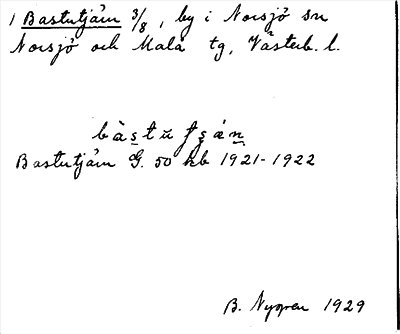 1 Bastutjärn 3/8, by i Norsjö sn
Norsjö och Malå tg, Västerb. l.
Bastutjärn G. 50 kb 1921-1922
B. Nygren 1929